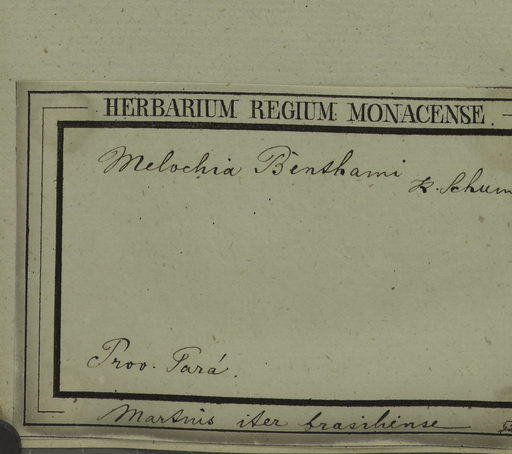 HERBARIUM REGIUM MONACENSE.
Melochia Benthami
K. Schum
Prov. Pará.
Martius iter brasiliense